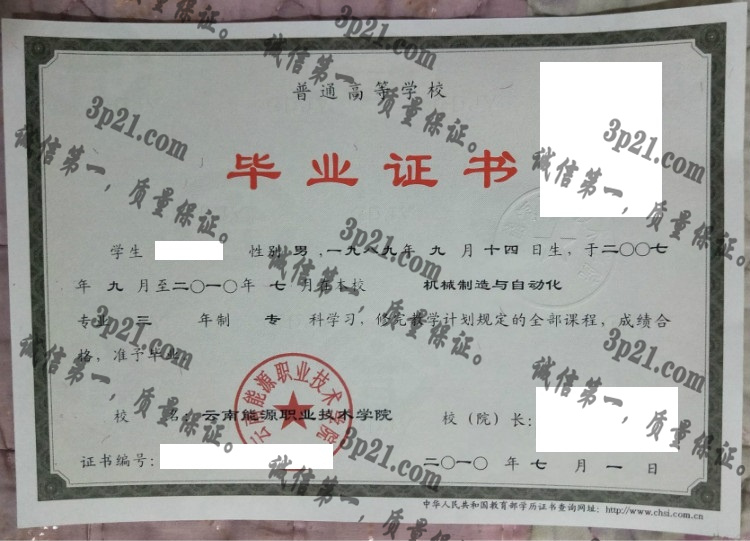 普通高等学校
毕业证书
学生 性别 男，一九八九年 九 月 十四 日生，于二〇〇七
年 九 月至二〇一〇年 七 月在本校 机械制造与自动化
专业 三 年制 专 科学习，修完教学计划规定的全部课程，成绩合
格，准予毕业。
校 名：云南能源职业技术学院 校（院）长：
证书编号： 二〇一〇 年 七 月 一 日
中华人民共和国教育部学历证书查询网址：http://www.chsi.com.cn
云南能源职业技术学院
3p21.com
诚信第一，质量保证。
3p21.com
诚信第一，质量保证。
3p21.com
诚信第一，质量保证。
3p21.com
诚信第一，质量保证。
3p21.com
诚信第一，质量保证。
3p21.com
诚信第一，质量保证。
3p21.com
诚信第一，质量保证。